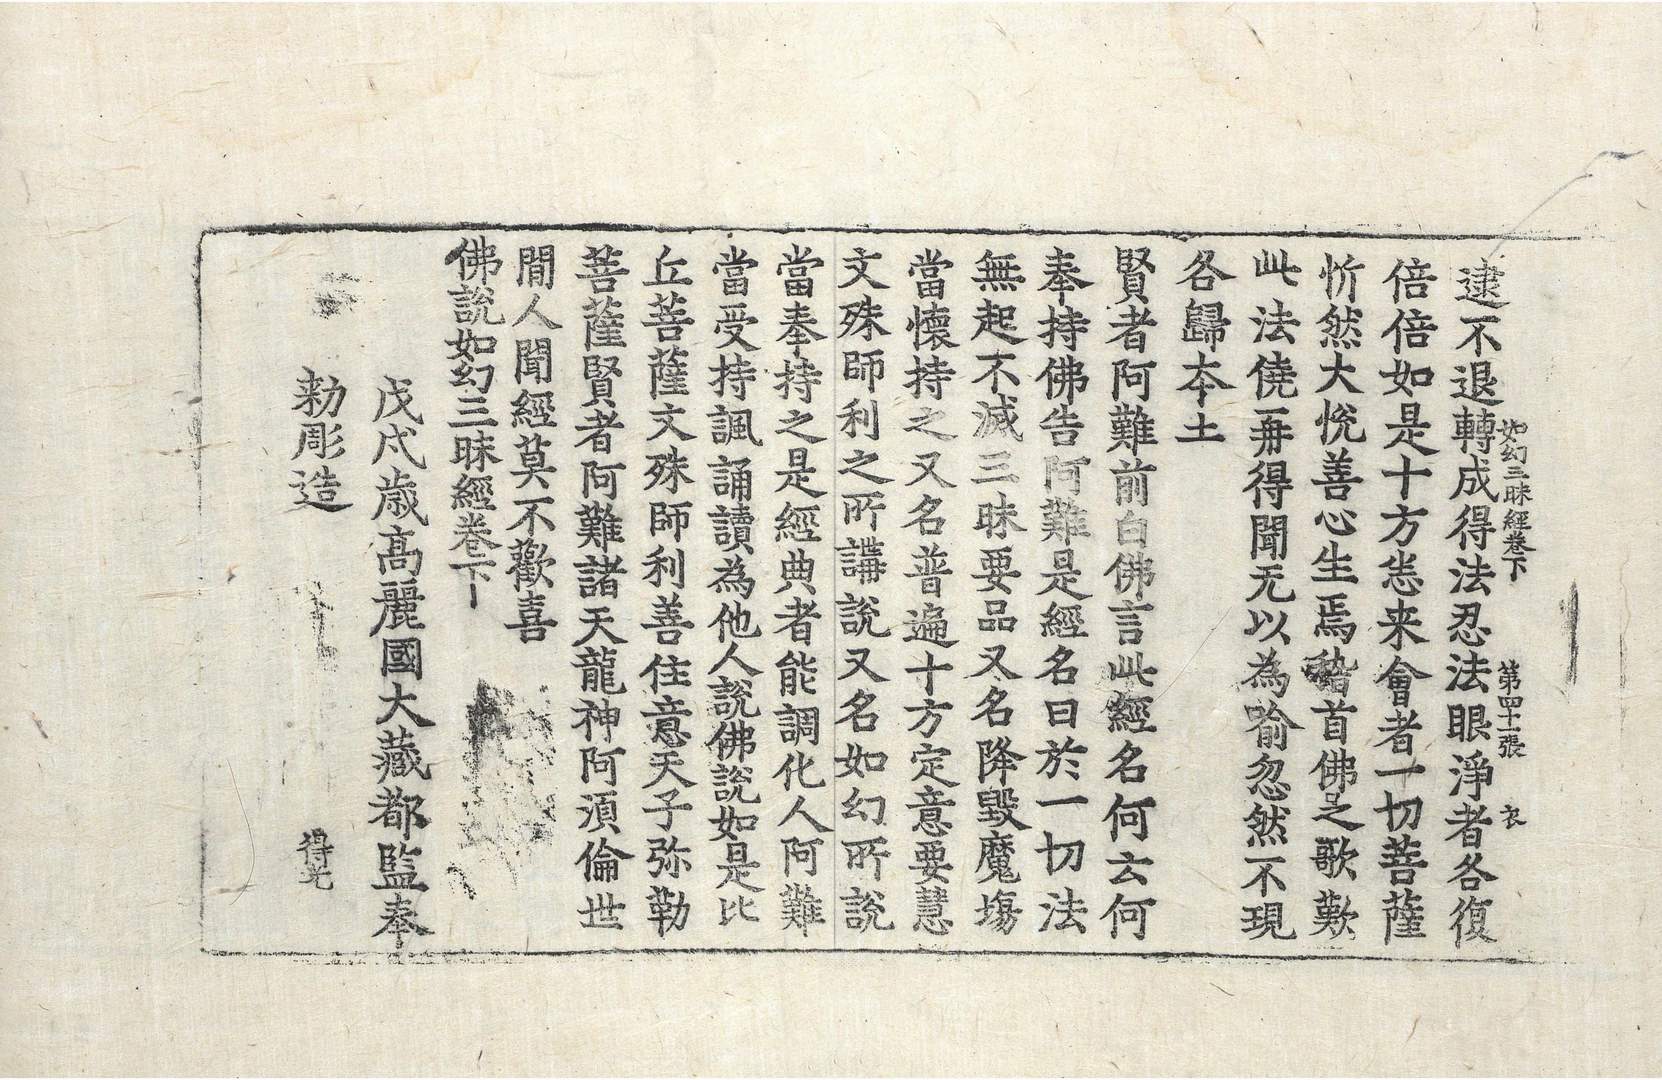 如幻三昧經卷下 第四十一張 衣
逮不退轉成得法忍法眼淨者各復
倍倍如是十方恙来會者一切菩薩
忻然大悅善心生焉稽首佛足歌歎
此法儓再得聞无以為喻忽然不現
各歸本土
賢者阿難前白佛言此經名何云何
奉持佛告阿難是經名曰於一切法
無起不滅三昧要品又名降毀魔塲
當懷持之又名普遍十方定意要慧
文殊師利之所講說又名如幻所說
當奉持之是經典者能調化人阿難
當受持諷誦讀為他人說佛說如是比
丘菩薩文殊師利善住意天子弥勒
菩薩賢者阿難諸天龍神阿須倫世
閒人聞經莫不歡喜
佛說如幻三昧經卷下
戊戌歲高麗國大藏都監奉
勅彫造
得光